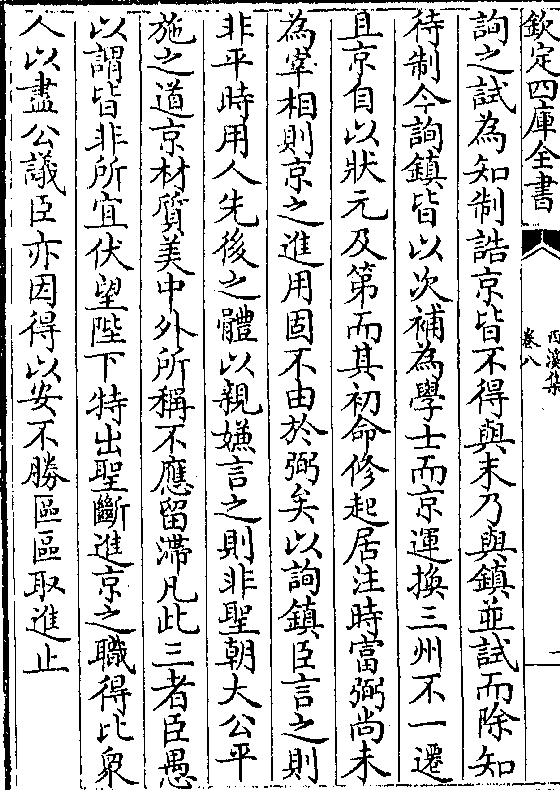 欽定四庫全書
西溪集
卷八
一
詢之試為知制誥京皆不得與末乃與鎮並試而除知
待制今詢鎮皆以次補為學士而京運換三州不一遷
且京自以狀元及第而其初命修起居注時富弼尚未
為宰相則京之進用固不由於弼矣以詢鎮臣言之則
非平時用人先後之體以親嫌言之則非聖朝大公平
施之道京材質美中外所稱不應留滯凡此三者臣愚
以謂皆非所宜伏望陛下特出聖斷進京之職得比衆
人以盡公議臣亦因得以安不勝區區取進止